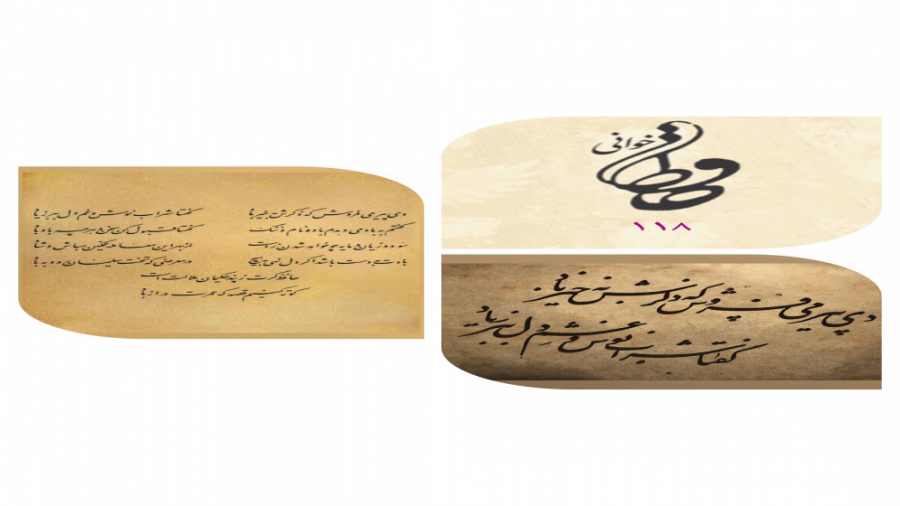 حافظ
خوانی
۱۱۸
دی پیر می فروش که ذکرش به خیر باد
گفتا شراب نوش و غم دل ببر ز یاد
دی پیر می فروش که ذکرش به خیر باد گفتا شراب نوش و غم دل ببر ز یاد
گفتم به باد می دهدم باده نام و ننگ گفتا قبول کن سخن و هر چه باد باد
سود و زیان و مایه چو خواهد شدن ز دست از بهر این معامله غمگین مباش و شاد
بادت به دست باشد اگر دل نهی به هیچ در معرضی که تخت سلیمان رود به باد
حافظ گرت ز پند حکیمان ملالت است
کوته کنیم قصه که عمرت دراز باد